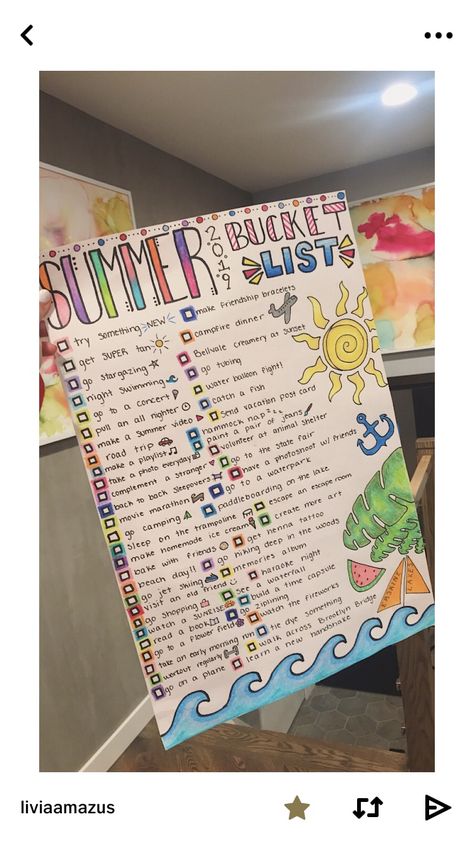 SUMMER
2019
BUCKET
LIST
try something NEW
get SUPER tan
go stargazing
night swimming
go to a concert
pull an all nighter
make a summer video
road trip
make a playlist
take a photo everyday
complement a stranger
back to back sleepovers
movie marathon
go camping
sleep on the trampoline
make homemode ice cream
bake with friends
beach day!!
go jet skiing
visit an old friend
go shopping
watch a SUNRISE
read a book
go to a flower field
take an early morning run
workout regularly
go on a plane
make friendship bracelets
campfire dinner
Bellvale creamery at sunset
go tubing
water balloon fight!
catch a fish
send vacation post card
hammock nap zzz
paint a pair of jeans
volunteer at animal shelter
go to the state fair
have a photoshoot w/ friends
go to a waterpark
paddleboarding on the lake
escape an escape room
create more art
get henna tattoo
go hiking deep in the woods
memories album
karaoke night
see a waterfall
build a time capsule
go ziplining
watch the fireworks
tie dye something
walk across Brooklyn Bridge
learn a new handshake
LAKES
liviaamazus